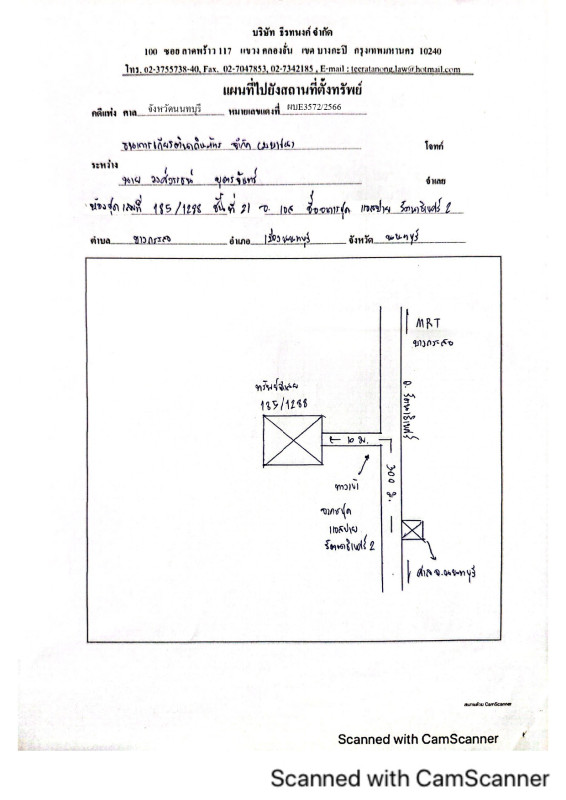 บริษัท ธีรทนงค์ จำกัด
100 ซอย ลาดพร้าว 117 แขวง คลองจั่น เขต บางกะปิ กรุงเทพมหานคร 10240
โทร. 02-3755738-40, Fax. 02-7047853, 02-7342185 , E-mail : teeratanong.law@hotmail.com
แผนที่ไปยังสถานที่ตั้งทรัพย์
คดีแพ่ง ศาล จังหวัดนนทบุรี หมายเลขแดงที่ ผบE3572/2566
ธนาคารเกียรตินาคินภัทร จำกัด (มหาชน) โจทก์
ระหว่าง
นาย จำเลย
ห้องชุด เลขที่ 185/1288 ชั้นที่ 21 อ. เอส ชื่ออาคารชุด แอสปาย รัตนาธิเบศร์ 2
ตำบล บางกระสอ อำเภอ เมืองนนทบุรี จังหวัด นนทบุรี
MRT
บางกระสอ
ถ. รัตนาธิเบศร์
ทรัพย์จำเลย
185/1288
10 ม.
300 ม.
ทางเข้า
อาคารชุด
แอสปาย
รัตนาธิเบศร์ 2
ศาล จ.นนทบุรี
สแกนด้วย CamScanner
Scanned with CamScanner
Scanned with CamScanner